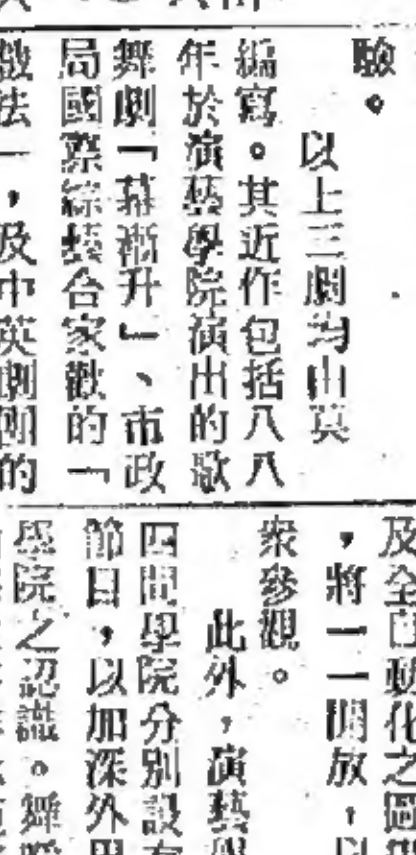 驗。
以上三劇均由莫
編寫。其近作包括八八
年於演藝學院演出的歌
舞劇「幕漸升」、市政
局國際綜藝合家歡的「
戲法」，及中英劇團的
及全自動化之圖
，將一一開放，以
衆參觀。
此外，演藝學
四間學院分別設有
節目，以加深外界
學院之認識。舞蹈